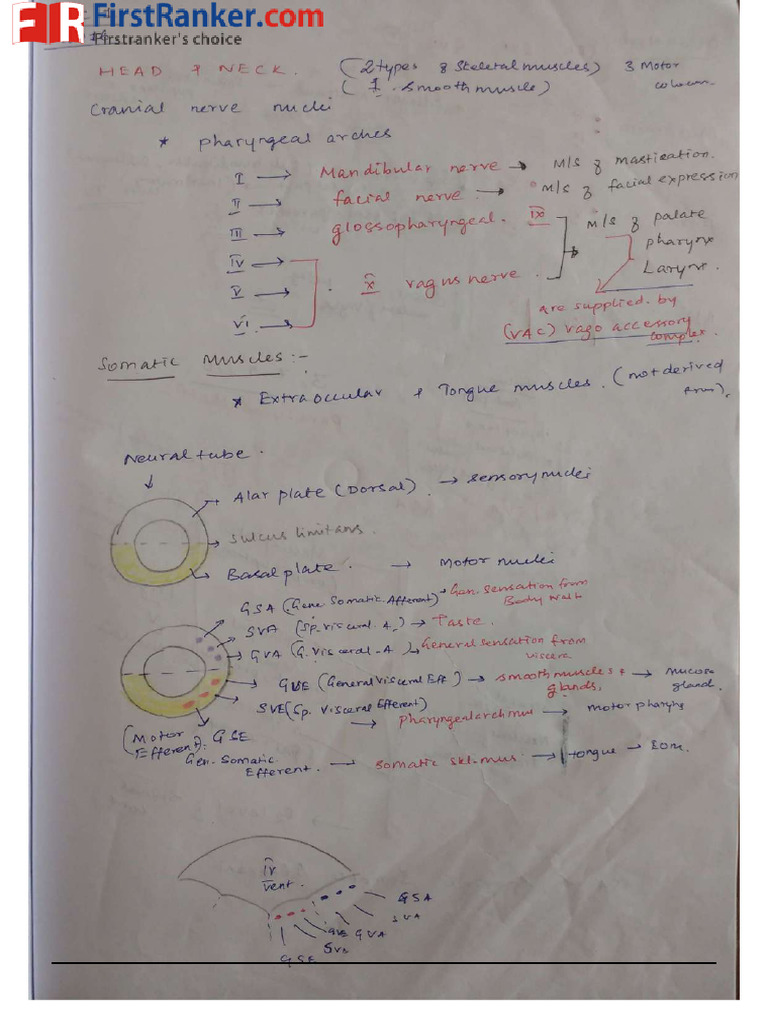 FirstRanker.com
Firstranker's choice
HEAD & NECK. (2 types of Skeletal muscles) 3 Motor
(1. Smooth muscle) column.
Cranial nerve nuclei
* Pharyngeal arches
I → Mandibular nerve → M/S of mastication.
II → facial nerve. → M/S of facial expression
III → glossopharyngeal. IX → M/S of palate
pharynx
Larynx.
IV →
V → X vagus nerve.
VI. →
are supplied by
(VAC) vago accessory
complex.
Somatic Muscles :-
* Extraoccular & Tongue muscles. (not derived
from).
Neural tube.
Alar plate (Dorsal) → sensory nuclei
Sulcus limitans.
Basal plate. → Motor nuclei
GSA (Gene. Somatic. Afferent) → Gen. sensation from
Body wall
SVA (Sp. visceral. A.) → Taste.
GVA (G. Visceral - A) → General sensation from
viscera
GVE (General Visceral Eff) → smooth muscles & glands. → mucosa gland.
SVE (Sp. Visceral Efferent)
→ Pharyngeal arch mus → motor pharynx
(Motor
Efferent): GSE
Gen. Somatic
Efferent. → Somatic skl. mus. → tongue → Eom.
IV
vent.
GSA
SVA
GVE GVA
SVE
GSE